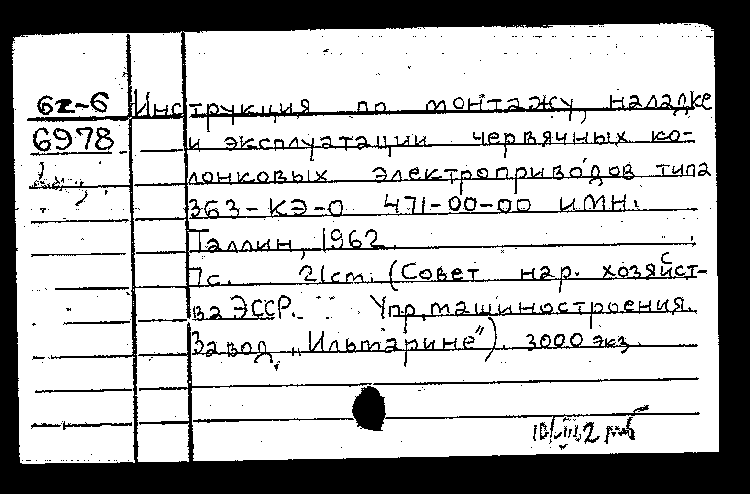 6z-6 Инструкция по монтажу, наладке
6978 и эксплуатации червячных ко-
лонковых электроприводов типа
363-КЭ-0 471-00-00 имн.
Таллин, 1962.
7с. 21см. (Совет нар. хозяйст-
ва ЭССР. Упр. машиностроения.
Завод „Ильмарине“). 3000 экз.